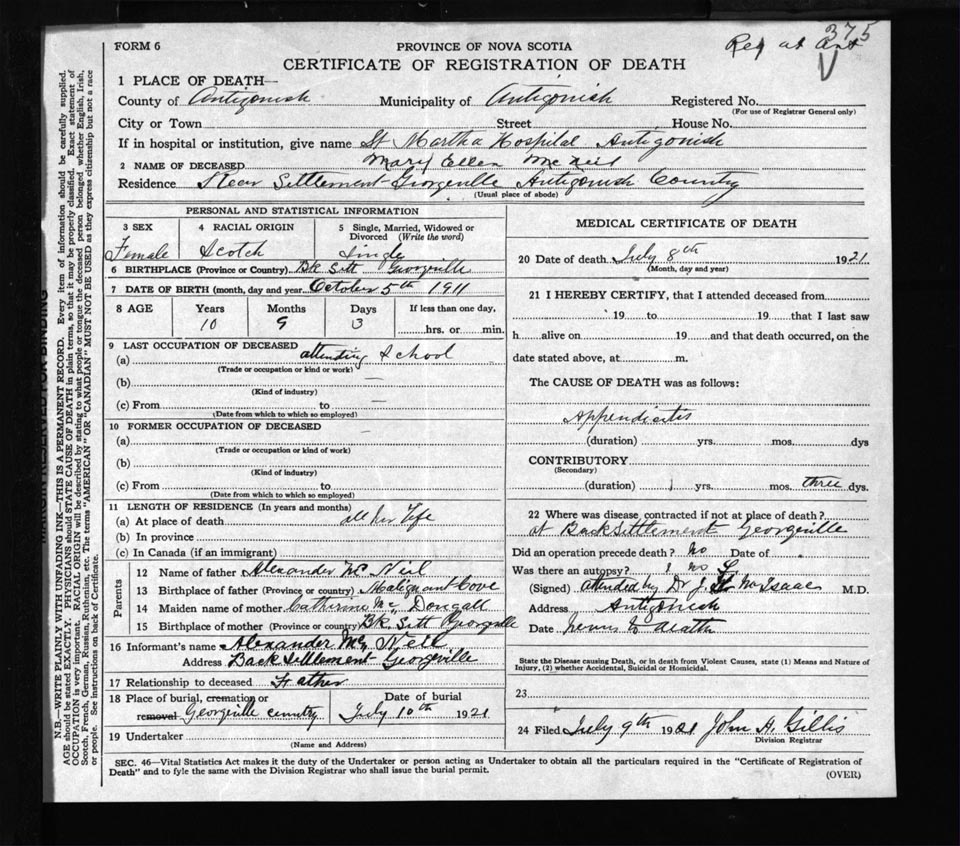 375
FORM 6
PROVINCE OF NOVA SCOTIA
Reg at Ant
CERTIFICATE OF REGISTRATION OF DEATH
1 PLACE OF DEATH—
County of Antigonish Municipality of Antigonish Registered No.
(For use of Registrar General only)
City or Town Street House No.
If in hospital or institution, give name St Martha Hospital Antigonish
2 NAME OF DECEASED Mary Ellen McNeil
Residence Rear Settlement Georgeville Antigonish Country
(Usual place of abode)
PERSONAL AND STATISTICAL INFORMATION
3 SEX 4 RACIAL ORIGIN 5 Single, Married, Widowed or Divorced (Write the word)
Female Scotch Single
6 BIRTHPLACE (Province or Country) Bk Sett Georgeville
7 DATE OF BIRTH (month, day and year October 5th 1911
8 AGE Years Months Days If less than one day,
10 9 3 hrs. or min.
9 LAST OCCUPATION OF DECEASED
(a) attending School
(Trade or occupation or kind or work)
(b) —
(Kind of industry)
(c) From to —
(Date from which to which so employed)
10 FORMER OCCUPATION OF DECEASED
(a)
(Trade or occupation or kind of work)
(b)
(Kind of industry)
(c) From to
(Date from which to which so employed)
11 LENGTH OF RESIDENCE (In years and months)
(a) At place of death all her life
(b) In province
(c) In Canada (if an immigrant)
Parents
12 Name of father Alexander McNeil
13 Birthplace of father (Province or country) Malignant Cove
14 Maiden name of mother Catherine McDougall
15 Birthplace of mother (Province or country) Bk. Sett Georgeville
16 Informant's name Alexander McNeil
Address Back Settlement Georgeville
17 Relationship to deceased Father
18 Place of burial, cremation or removal Georgeville cemetry
Date of burial July 10th 1921
19 Undertaker
(Name and Address)
MEDICAL CERTIFICATE OF DEATH
20 Date of death July 8th 1921
(Month, day and year)
21 I HEREBY CERTIFY, that I attended deceased from
19 to 19 that I last saw
h alive on 19 and that death occurred, on the
date stated above, at m.
The CAUSE OF DEATH was as follows:
Appendicitis
(duration) yrs. mos. dys
CONTRIBUTORY
(Secondary)
(duration) yrs. mos. three dys.
22 Where was disease contracted if not at place of death?
at Back Settlement Georgeville
Did an operation precede death? No Date of
Was there an autopsy? No
(Signed) attended by Dr J. McIsaac M.D.
Address Antigonish
Date to death
State the Disease causing Death, or in death from Violent Causes, state (1) Means and Nature of
Injury, (2) whether Accidental, Suicidal or Homicidal.
23
24 Filed July 9th 1921 John H. Gillis
Division Registrar
SEC. 46—Vital Statistics Act makes it the duty of the Undertaker or person acting as Undertaker to obtain all the particulars required in the "Certificate of Registration of
Death" and to fyle the same with the Division Registrar who shall issue the burial permit.
(OVER)
MARGIN RESERVED FOR BINDING
N.B.—WRITE PLAINLY WITH UNFADING INK—THIS IS A PERMANENT RECORD. Every item of information should be carefully supplied.
AGE should be stated EXACTLY. PHYSICIANS should STATE CAUSE OF DEATH in plain terms, so that it may be properly classified. Exact statement of
OCCUPATION is very important. RACIAL ORIGIN will be described by stating to what people or tongue the deceased person belonged whether English, Irish,
Scotch, French, German, Russian, Ruthenian, etc. The terms "AMERICAN" OR "CANADIAN" MUST NOT BE USED as they express citizenship but not a race
or people. See instructions on back of Certificate.